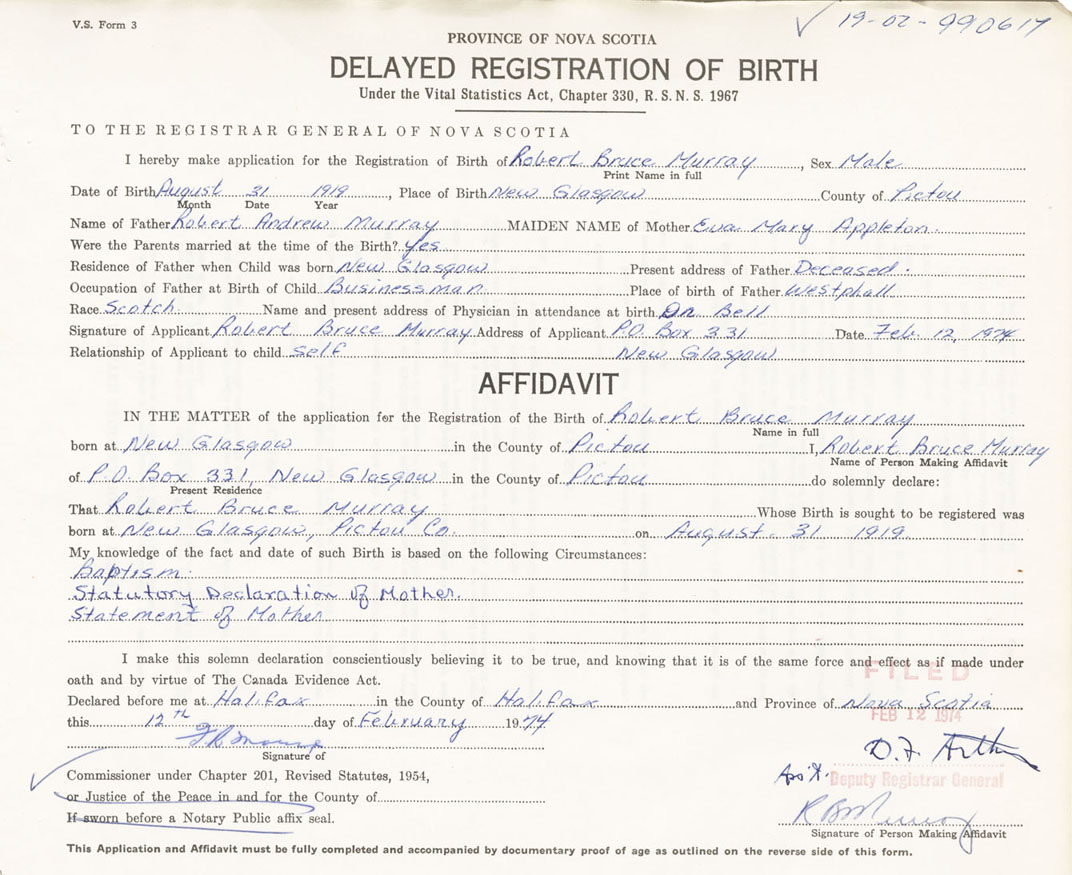 V.S. Form 3
19-02-990617
PROVINCE OF NOVA SCOTIA
DELAYED REGISTRATION OF BIRTH
Under the Vital Statistics Act, Chapter 330, R.S.N.S. 1967
TO THE REGISTRAR GENERAL OF NOVA SCOTIA
I hereby make application for the Registration of Birth of Robert Bruce Murray, Sex Male
Print Name in full
Date of Birth August 31 1919, Place of Birth New Glasgow County of Pictou
Month Date Year
Name of Father Robert Andrew Murray MAIDEN NAME of Mother Eva Mary Appleton.
Were the Parents married at the time of the Birth? Yes
Residence of Father when Child was born New Glasgow Present address of Father Deceased.
Occupation of Father at Birth of Child Businessman Place of birth of Father Westphall
Race Scotch Name and present address of Physician in attendance at birth Dr Bell
Signature of Applicant Robert Bruce Murray Address of Applicant P.O. Box 331 Date Feb. 12, 1974
Relationship of Applicant to child self New Glasgow
AFFIDAVIT
IN THE MATTER of the application for the Registration of the Birth of Robert Bruce Murray
Name in full
born at New Glasgow in the County of Pictou I, Robert Bruce Murray
Name of Person Making Affidavit
of P.O. Box 331, New Glasgow in the County of Pictou do solemnly declare:
Present Residence
That Robert Bruce Murray Whose Birth is sought to be registered was
born at New Glasgow, Pictou Co. on August 31 1919
My knowledge of the fact and date of such Birth is based on the following Circumstances:
Baptism
Statutory Declaration of Mother.
Statement of Mother
I make this solemn declaration conscientiously believing it to be true, and knowing that it is of the same force and effect as if made under
oath and by virtue of The Canada Evidence Act.
FILED
Declared before me at Halifax in the County of Halifax and Province of Nova Scotia
this 12th day of February 1974
FEB 12 1974
Signature of
Commissioner under Chapter 201, Revised Statutes, 1954,
Deputy Registrar General
or Justice of the Peace in and for the County of
If sworn before a Notary Public affix seal.
R B Murray
Signature of Person Making Affidavit
This Application and Affidavit must be fully completed and accompanied by documentary proof of age as outlined on the reverse side of this form.